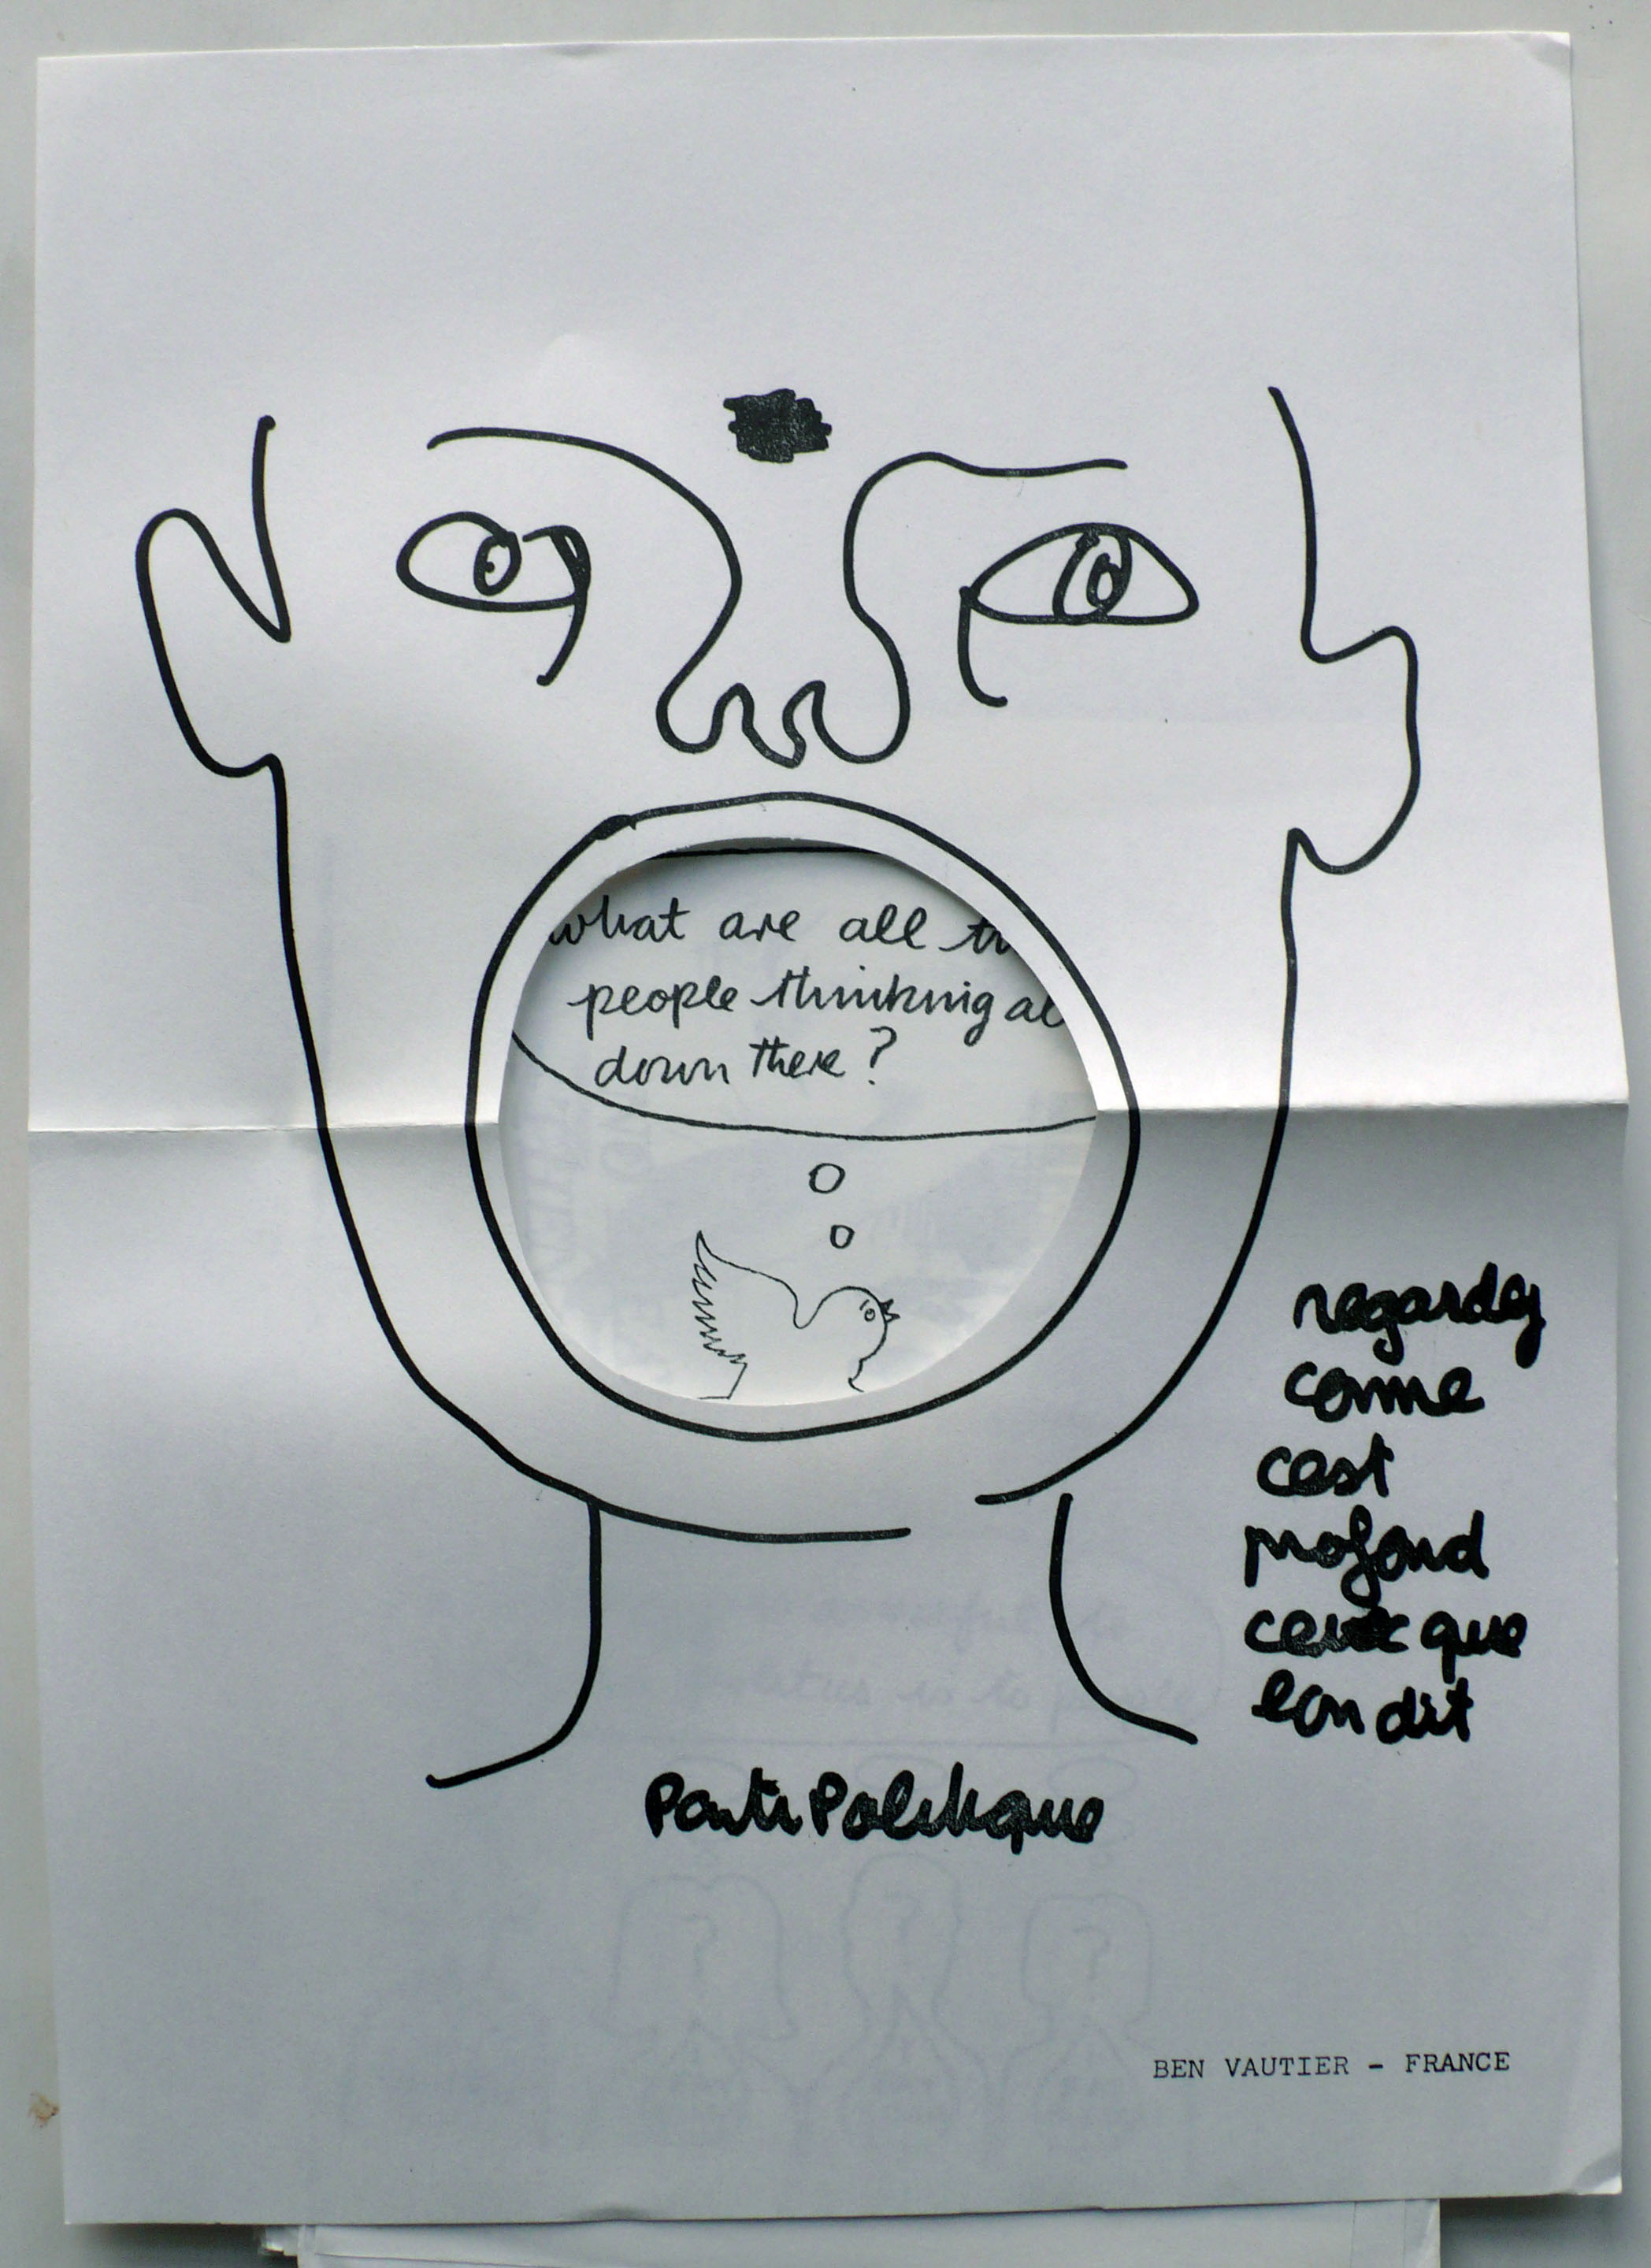 what are all th
people thinking ab
down there?
regardez
comme
cest
profond
ceux que
lon dit
Parti Politique
BEN VAUTIER - FRANCE